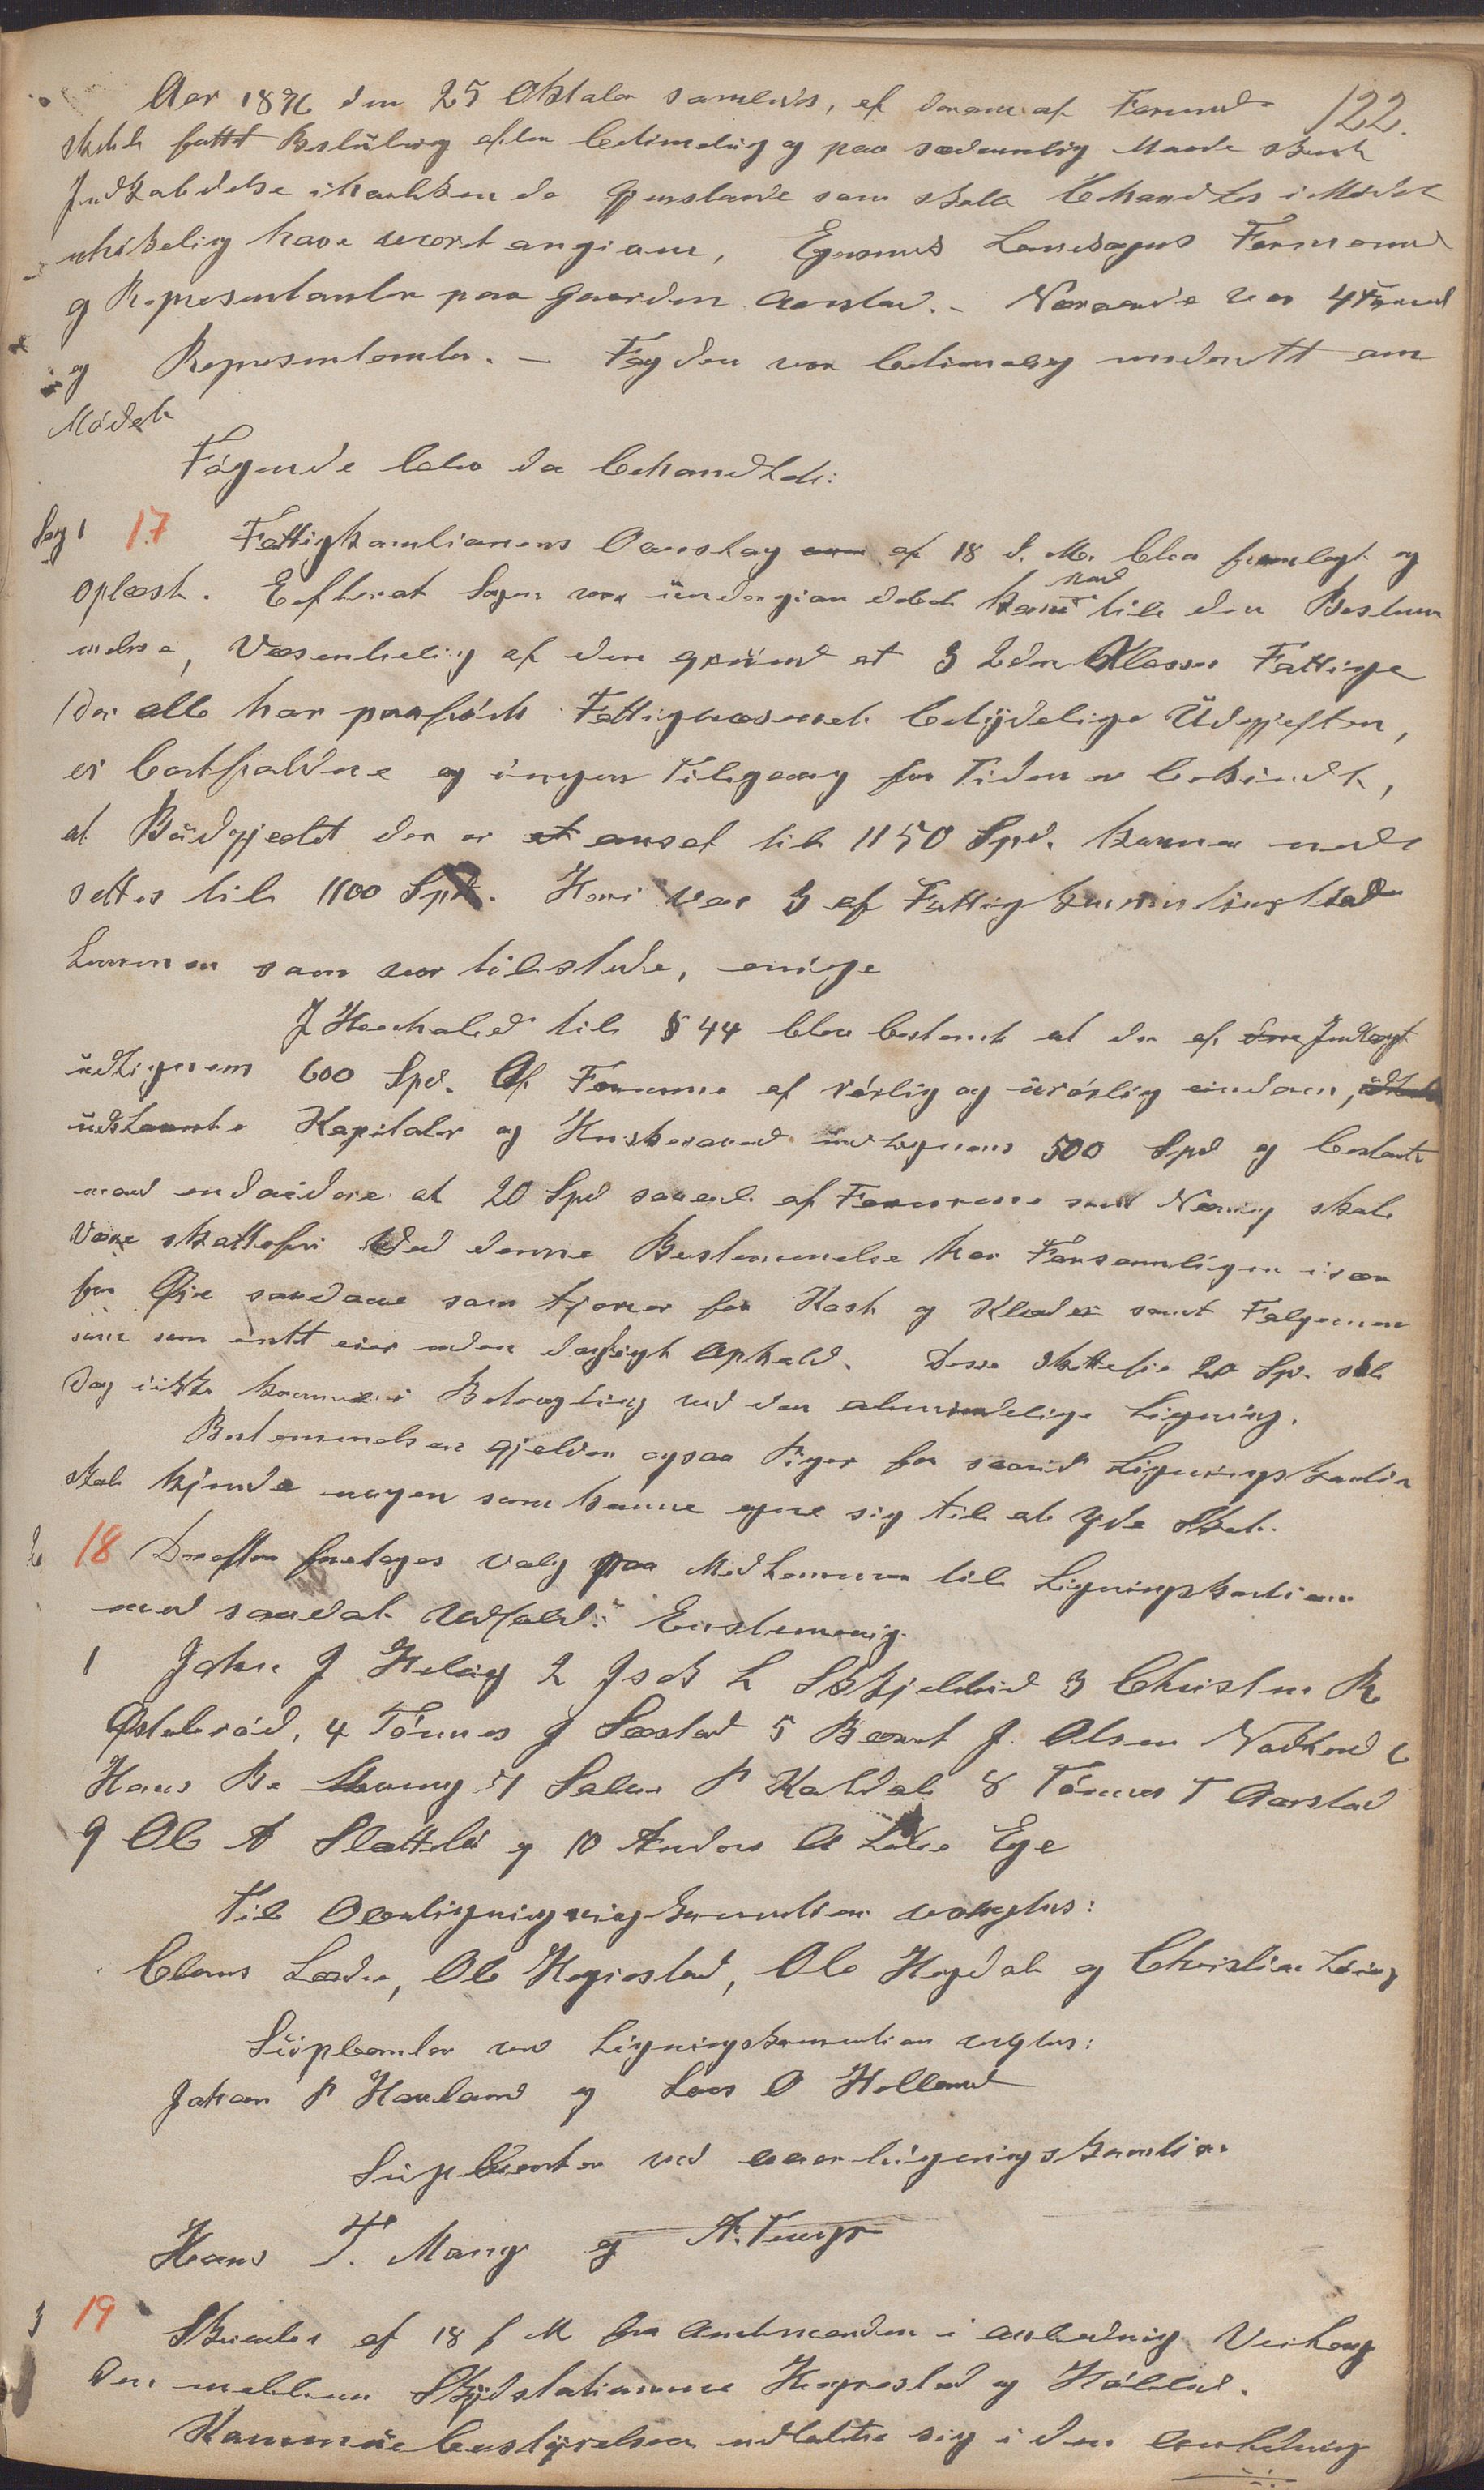 Aar 1876 den 25 Oktober samledes, ef
122.
skabet fattt Beslutning efter betimelig og paa sædvanlig Maade skeet
Indkaldelse i hvilken de Gjenstande som skulle behandles i Mødet
uhikelig have været angivne, Egersunds Landsogns Formænd
og Repræsentanter paa Gaarden Aarstad. - Nærværende var 4 Formænd
og Repræsentanter. - Fogden var betimelig underrett om
Mødet
Følgende blev da behandlet:
Sag 1 17 Fattigkomitionens Overslag af 18 d. M. blev fremlagt og
oplæst. Efterat Sagen var undergivet debat kom man til den Bestem
melse, Væsentlig af den grund at 3 2den Klasses Fattige
(der alle har paaført Fattigvæsenet betydelige Udgifter,
er bortfaldne og ingen Tilgang for Tiden er bekjendt,
at Budgjedet der er anset til 1150 Spd. kunne ned
settes til 1100 Spd. Heri var 3 af Fattigkommissionens Med
lemmer som var tilstede, enige
I Henhold til § 44 blev bestemt at der af Indtægt
udlignes 600 Spd. Af Formue af rørlig og urørlig eiendom,
udstaaende Kapitaler og Huskerarad udlignes 500 Spd og bestemte
man endvidere at 20 Spd saavel af Formue som Næring skal
være skattefri Ved denne Bestemmelse har Forsamlingen især
for Øje saadanne som tjener for Kost og Klæder samt Følgemænd
som intet eier uden dagligt Ophold. Disse skattefri 20 Spd. skal
dog ikke komme i Betragtning ved den almindelige Ligning.
Bestemmelsen gjelder ogsaa Piger for saavid Ligningskomtion
skal kjende nogen som kunne egne sig til at yde Skat.
2 18 Derefter foretages valg paa Medlemmer til Ligningskomtionen
med saadant Udfald: Enstemmig.
1 John J Helvig 2 Isak L Skjelbred 3 Christen R
Østebrød, 4 Tønnes J Sæstad 5 Bernt J. Olsen Nodland 6
Hans B. Mong 7 Salve P Kaldal 8 Tønnes T Aarstad
9 Ole A Slettebø og 10 Anders A Lille Ege
Til Overligningskommition valgtes:
Claus Lædre, Ole Hegrestad, Ole Hegdal og Christian Løvig
Suplanter ved Ligningskommitionen valgtes:
Johan P Hauland og Lars O Helland
Suplenter ved overligningskomtion
Hans T. Mong og A. Tengs
3 19 Skrivelse af 18 f M fra Amtmanden i anledning Veilæng
den mellem Skydsstationerne Hegrestad og Hølland.
Kommunebestyrelsen udtalte sig i den anledning